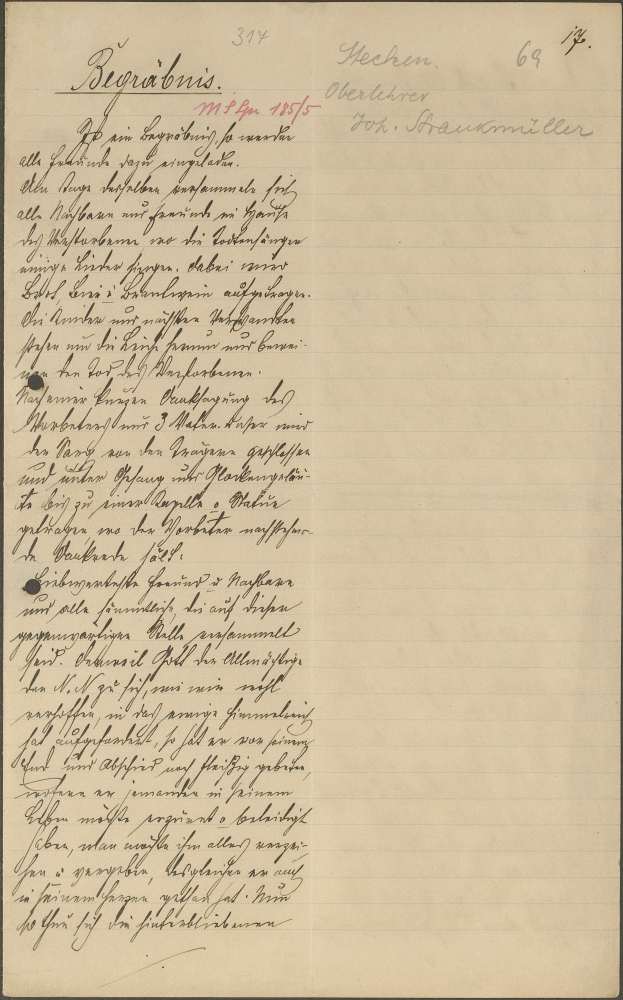 314
17.
Stecken.
69
Begräbnis.
Oberlehrer
MS Gr 185/5
Joh. Strauckmüller
Ist ein Begräbnis, so werden
alle Freunde dazu eingeladen.
Am Tage desselben versammeln sich
alle Nachbarn und Freunde im Hause
des Verstorbenen, wo die Todtensänger
einige Lieder singen. Dabei wird
Brot, Bier u Brantwein aufgetragen.
Die Kinder und nächsten Verwandten
stehen um die Leiche herum und bewei-
nen den Tod des Verstorbenen.
Nach einer kurzen Danksagung des
Vorbeters und 3 Vater unser wird
der Sarg von den Trägern geschlossen
und unter Gesang und Glockengeläu-
te bis zu einer Kapelle o. Statue
getragen, wo der Vorbeter nachstehen-
de Dankrede hält:
Liebwerteste Freund u Nachbarn
und alle sämmtliche, die auf dieser
gegenwärtigen Stelle versammelt
seid. Demweil Gott der Allmächtige
den N. N zu sich, wie wir wohl
verhoffen, in das ewige Himmelreich
hat aufgefordert, so hat er vor seinem
End und Abschied noch fleißig gebeten,
wofern er jemanden in seinem
Leben möchte erzürnt o beleidigt
haben, man möchte ihm alles verzei-
hen u vergeben, desgleichen er auch
in seinem Herzen gethan hat. Nun
so thun sich die hinterbliebenen